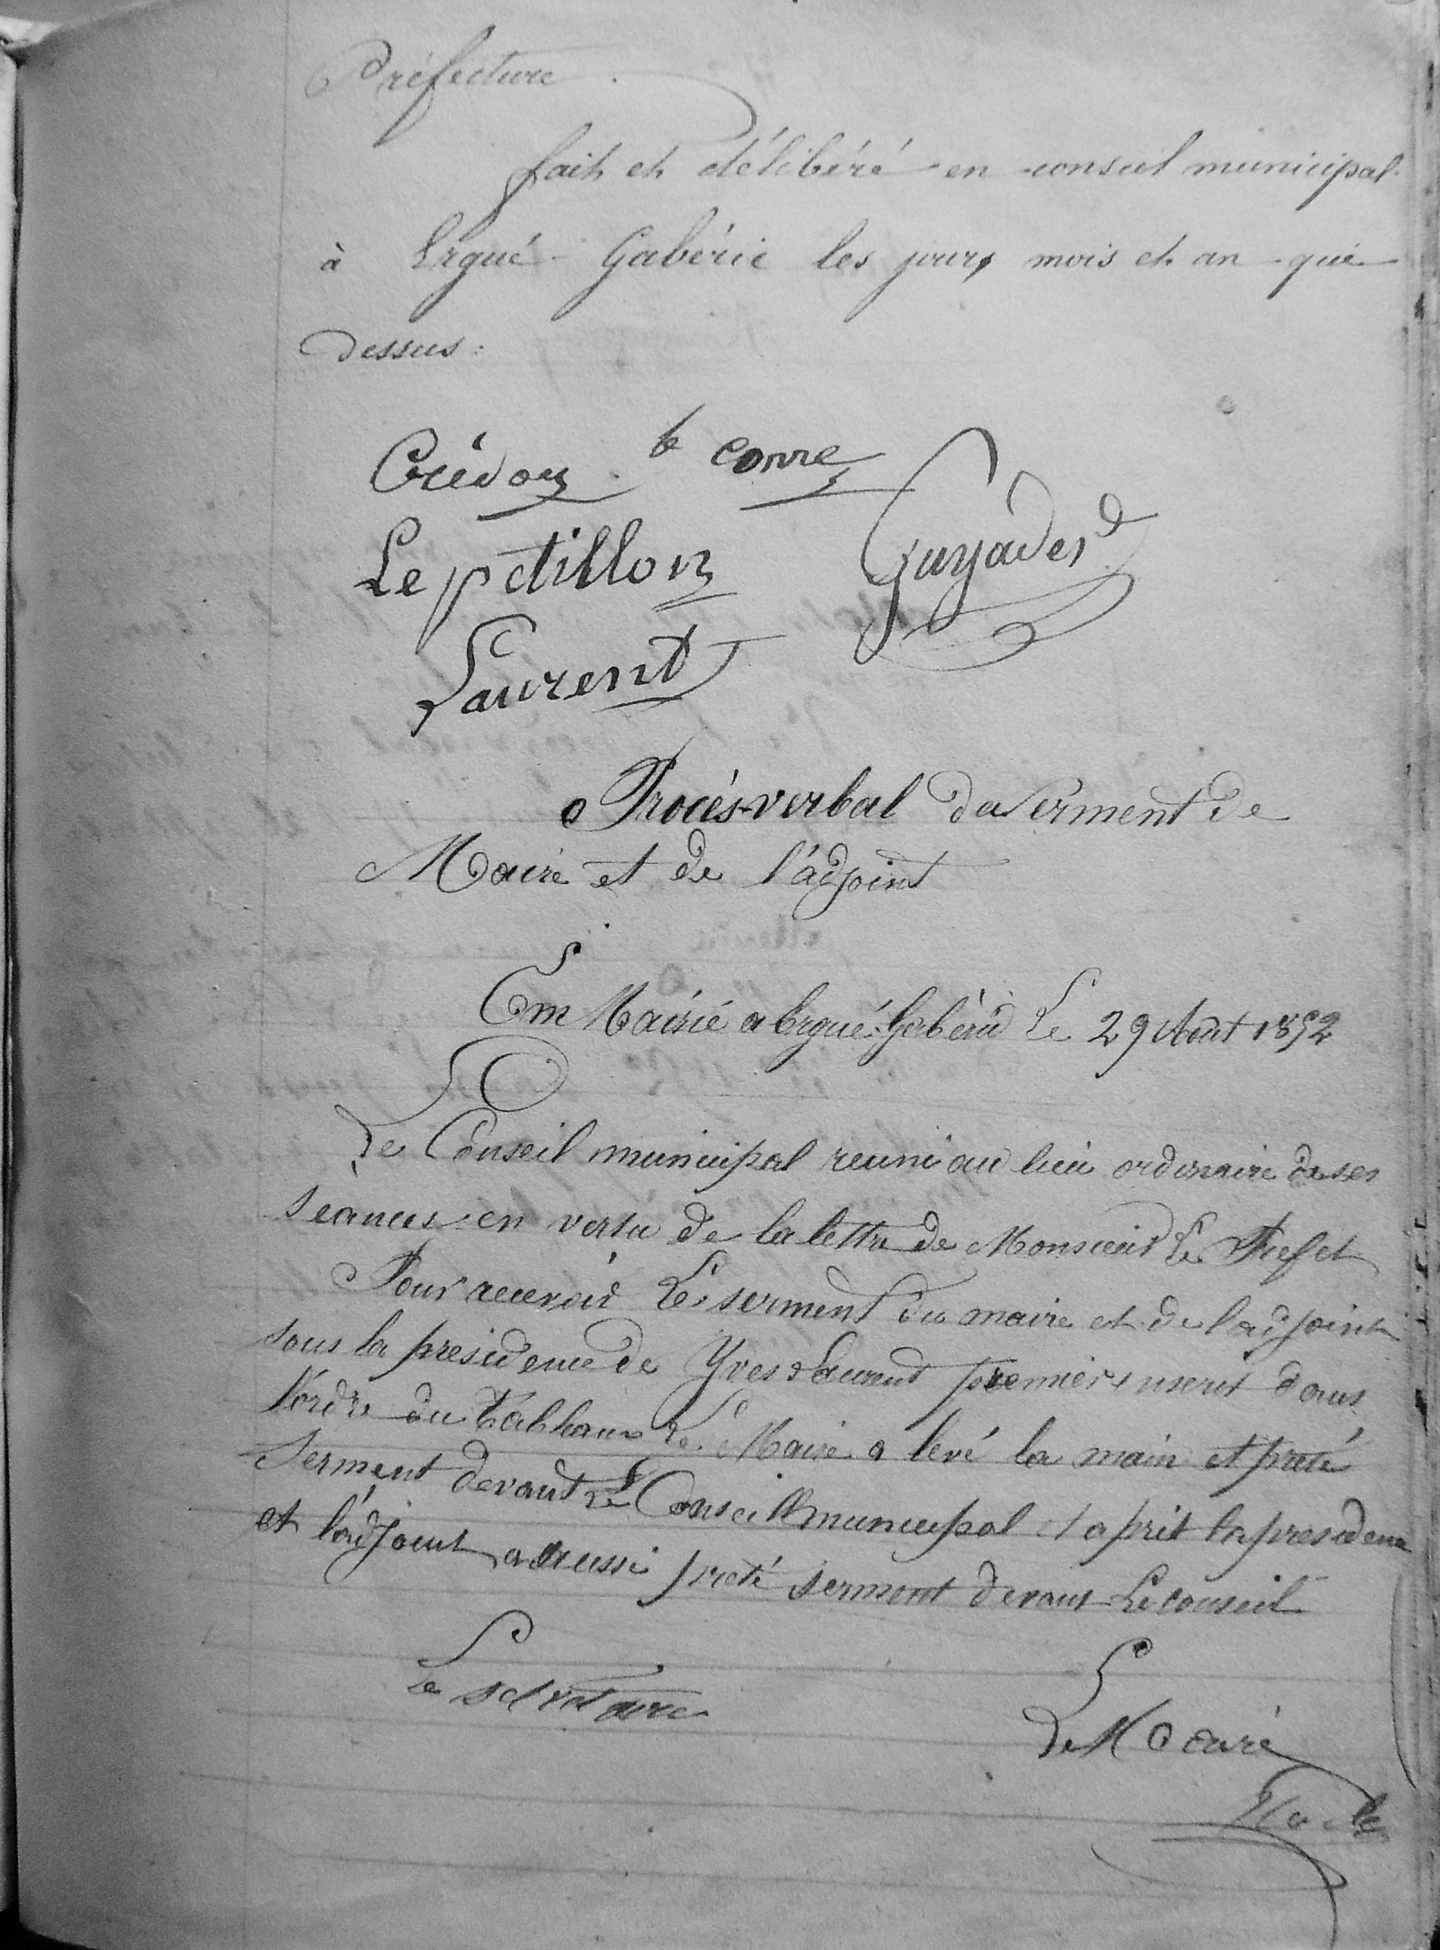 Préfecture.
fait et délibéré en conseil municipal
à Ergué-Gabéric les jours mois et an que
dessus:
Crédou le corre
Le pétillon Guyader
Laurent
Procés-verbal du serment de
Maire et de l'adjoint
En Mairie a Ergué-Gabéric Le 29 Aout 1852
Le Conseil municipal reuni au lieu ordinaire de ses
seances en vertu de la lettre de Monsieur Le Prefet
Pour recevoir Le serment du maire et de l'adjoint
sous la presidence de Yves Laurent premier inscrit dans
l'ordre du tableau Le Maire a levé la main et preté
serment devant Le Conseil municipal et a prit la presidence
et l'adjoint a aussi preté serment devant Le conseil
Le secretaire
Le Maire